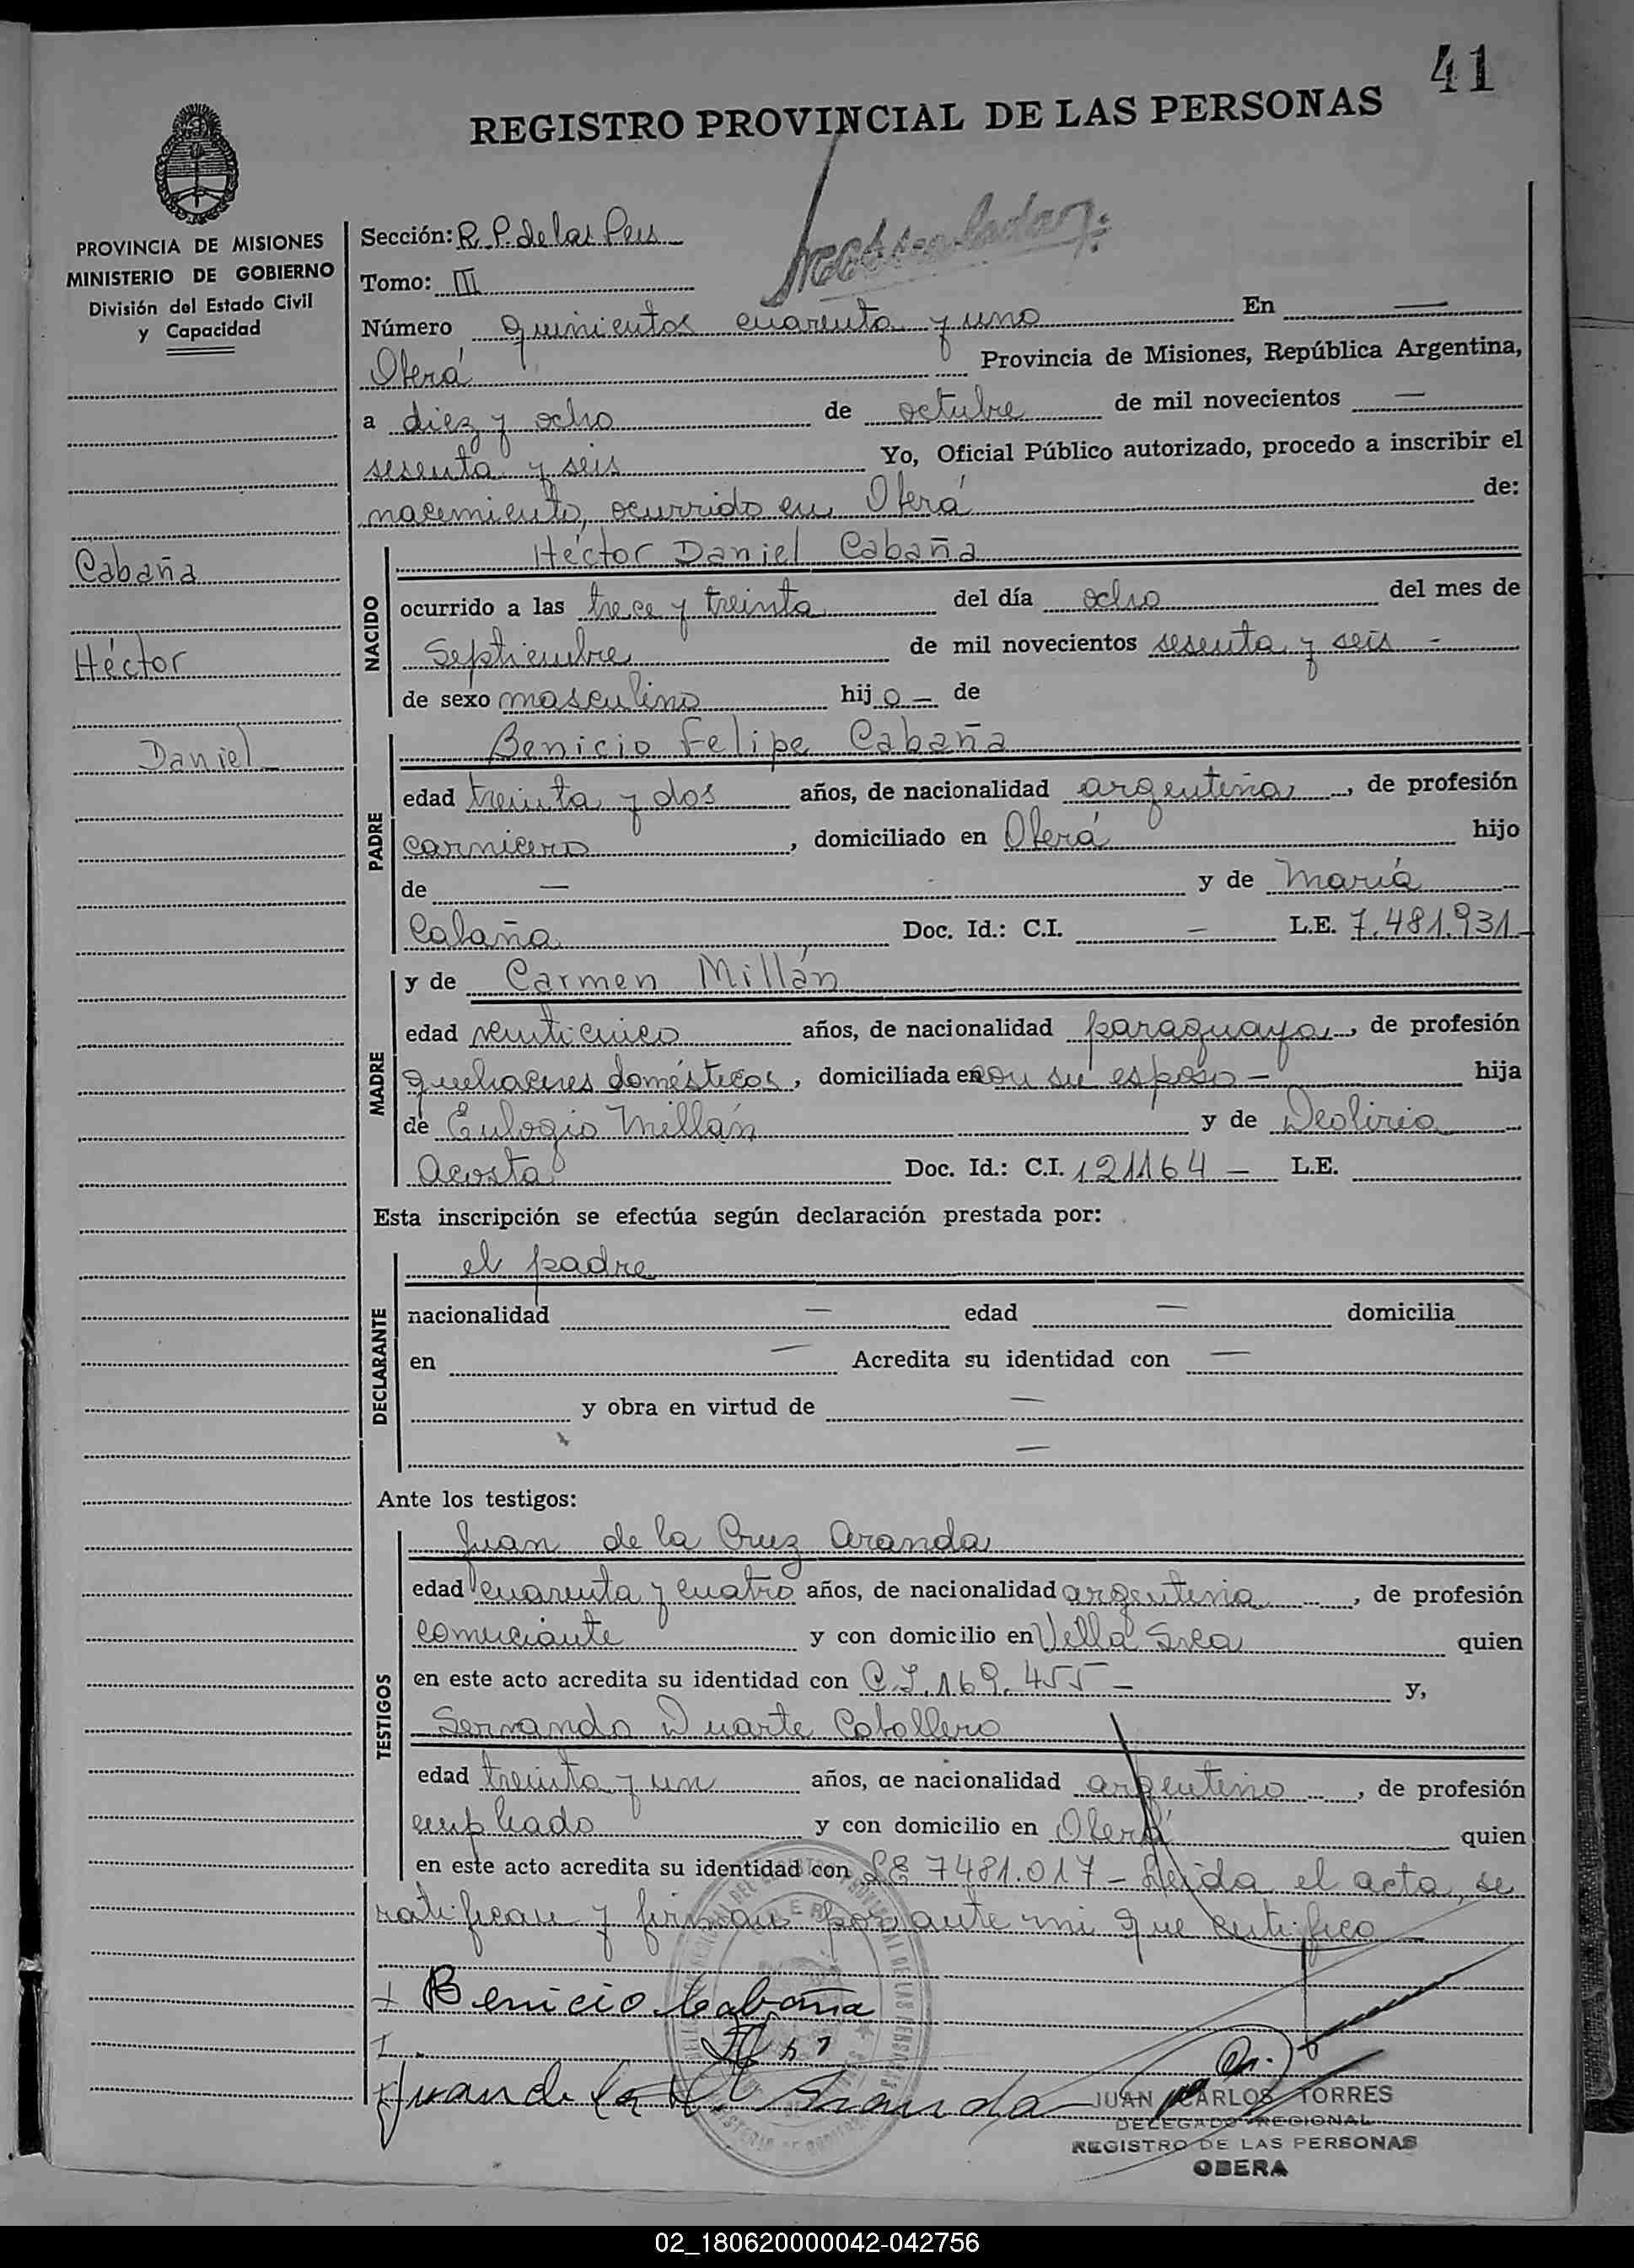 41
REGISTRO PROVINCIAL DE LAS PERSONAS
PROVINCIA DE MISIONES
MINISTERIO DE GOBIERNO
División del Estado Civil
y Capacidad
Cabaña
Héctor
Daniel
Sección: R. P. de las Pers
Tomo: III
Número quinientos cuarenta y uno En —
Oberá Provincia de Misiones, República Argentina,
a diez y ocho de octubre de mil novecientos —
sesenta y seis Yo, Oficial Público autorizado, procedo a inscribir el
nacimiento, ocurrido en Oberá de:
NACIDO
Héctor Daniel Cabaña
ocurrido a las trece y treinta del día ocho del mes de
Septiembre de mil novecientos sesenta y seis -
de sexo masculino hijo — de
PADRE
Benicio Felipe Cabaña
edad treinta y dos años, de nacionalidad argentina, de profesión
carnicero, domiciliado en Oberá hijo
de — y de María
Cabaña Doc. Id.: C.I. — L.E. 7.481.931-
MADRE
y de Carmen Millán
edad veinticinco años, de nacionalidad paraguaya, de profesión
quehaceres domésticos, domiciliada en con su esposo - hija
de Eulogio Millán y de
Acosta Doc. Id.: C.I. 121164 — L.E.
Esta inscripción se efectúa según declaración prestada por:
DECLARANTE
el padre
nacionalidad — edad — domicilia
en — Acredita su identidad con —
y obra en virtud de —
—
Ante los testigos:
TESTIGOS
Juan de la Cruz Aranda
edad cuarenta y cuatro años, de nacionalidad argentina, de profesión
comerciante y con domicilio en Villa quien
en este acto acredita su identidad con C.I. 169.455 - y,
Servando Duarte Caballero
edad treinta y un años, de nacionalidad argentino, de profesión
empleado y con domicilio en Oberá quien
en este acto acredita su identidad con LE 7481.017 - Leida el acta, se
ratifican y firman por ante mi que certifico
Benicio Cabaña
Juan de la Aranda
JUAN CARLOS TORRES
DELEGADO REGIONAL
REGISTRO DE LAS PERSONAS
OBERA
02_180620000042-042756